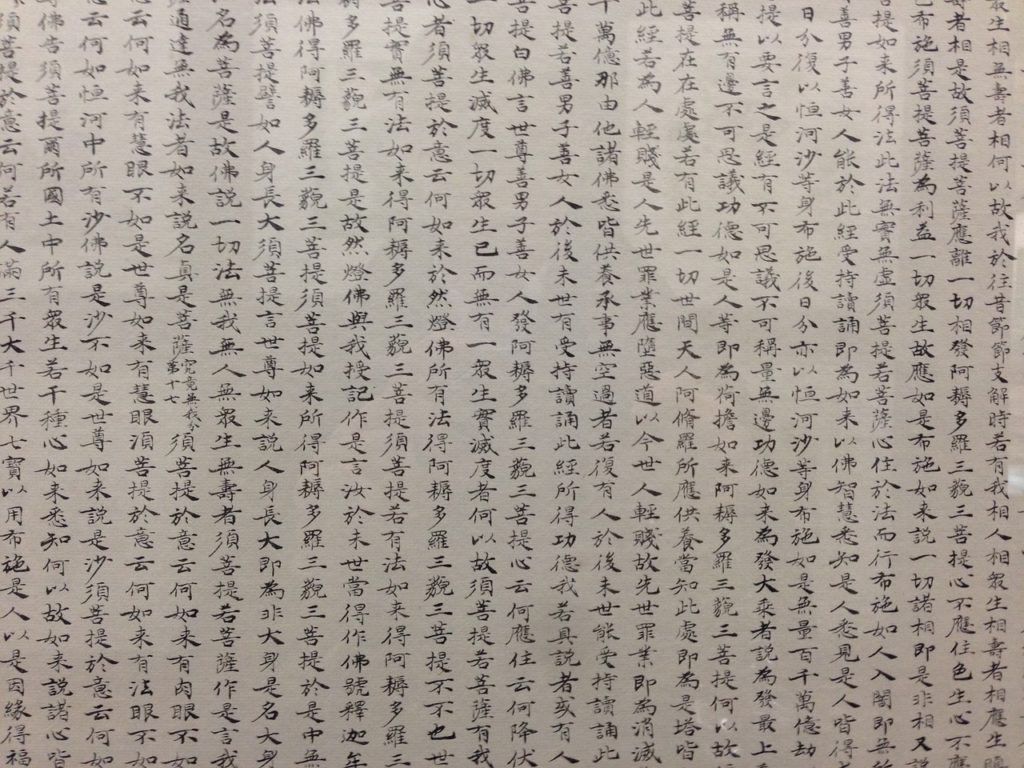 衆生相無壽者相何以故我於往昔節節支解時若有我相人相衆生相壽者相應生瞋
壽者相是故須菩提菩薩應離一切相發阿耨多羅三藐三菩提心不應住色生心不應
已布施須菩提菩薩為利益一切衆生故應如是布施如來說一切諸相即是非相又說
菩提如來所得法此法無實無虛須菩提若菩薩心住於法而行布施如人入闇即無所
善男子善女人能於此經受持讀誦即為如來以佛智慧悉知是人悉見是人皆得
日分復以恒河沙等身布施後日分亦以恒河沙等身布施如是無量百千萬億劫
提以要言之是經有不可思議不可稱量無邊功德如來為發大乘者說為發最上
稱無有邊不可思議功德如是人等即為荷擔如來阿耨多羅三藐三菩提何以故
菩提在在處處若有此經一切世間天人阿脩羅所應供養當知此處即為是塔皆
此經若為人輕賤是人先世罪業應墮惡道以今世人輕賤故先世罪業即為消滅
千萬億那由他諸佛悉皆供養承事無空過者若復有人於後末世能受持讀誦此
菩提若善男子善女人於後末世有受持讀誦此經所得功德我若具說者或有人
菩提白佛言世尊善男子善女人發阿耨多羅三藐三菩提心云何應住云何降伏
一切衆生滅度一切衆生已而無有一衆生實滅度者何以故須菩提若菩薩有我
心者須菩提於意云何如來於然燈佛所有法得阿耨多羅三藐三菩提不不也世
菩提實無有法如來得阿耨多羅三藐三菩提須菩提若有法如來得阿耨多羅三
耨多羅三藐三菩提是故然燈佛與我授記作是言汝於來世當得作佛號釋迦牟
法佛得阿耨多羅三藐三菩提須菩提如來所得阿耨多羅三藐三菩提於是中無
須菩提譬如人身長大須菩提言世尊如來說人身長大即為非大身是名大身
名為菩薩是故佛說一切法無我無人無衆生無壽者須菩提若菩薩作是言我
通達無我法者如來說名真是菩薩究竟無我分第十七須菩提於意云何如來有肉眼不如
意云何如來有慧眼不如是世尊如來有慧眼須菩提於意云何如來有法眼不如
意云何如恒河中所有沙佛說是沙不如是世尊如來說是沙須菩提於意云何如
佛告須菩提爾所國土中所有衆生若干種心如來悉知何以故如來說諸心皆
須菩提於意云何若有人滿三千大千世界七寶以用布施是人以是因緣得福